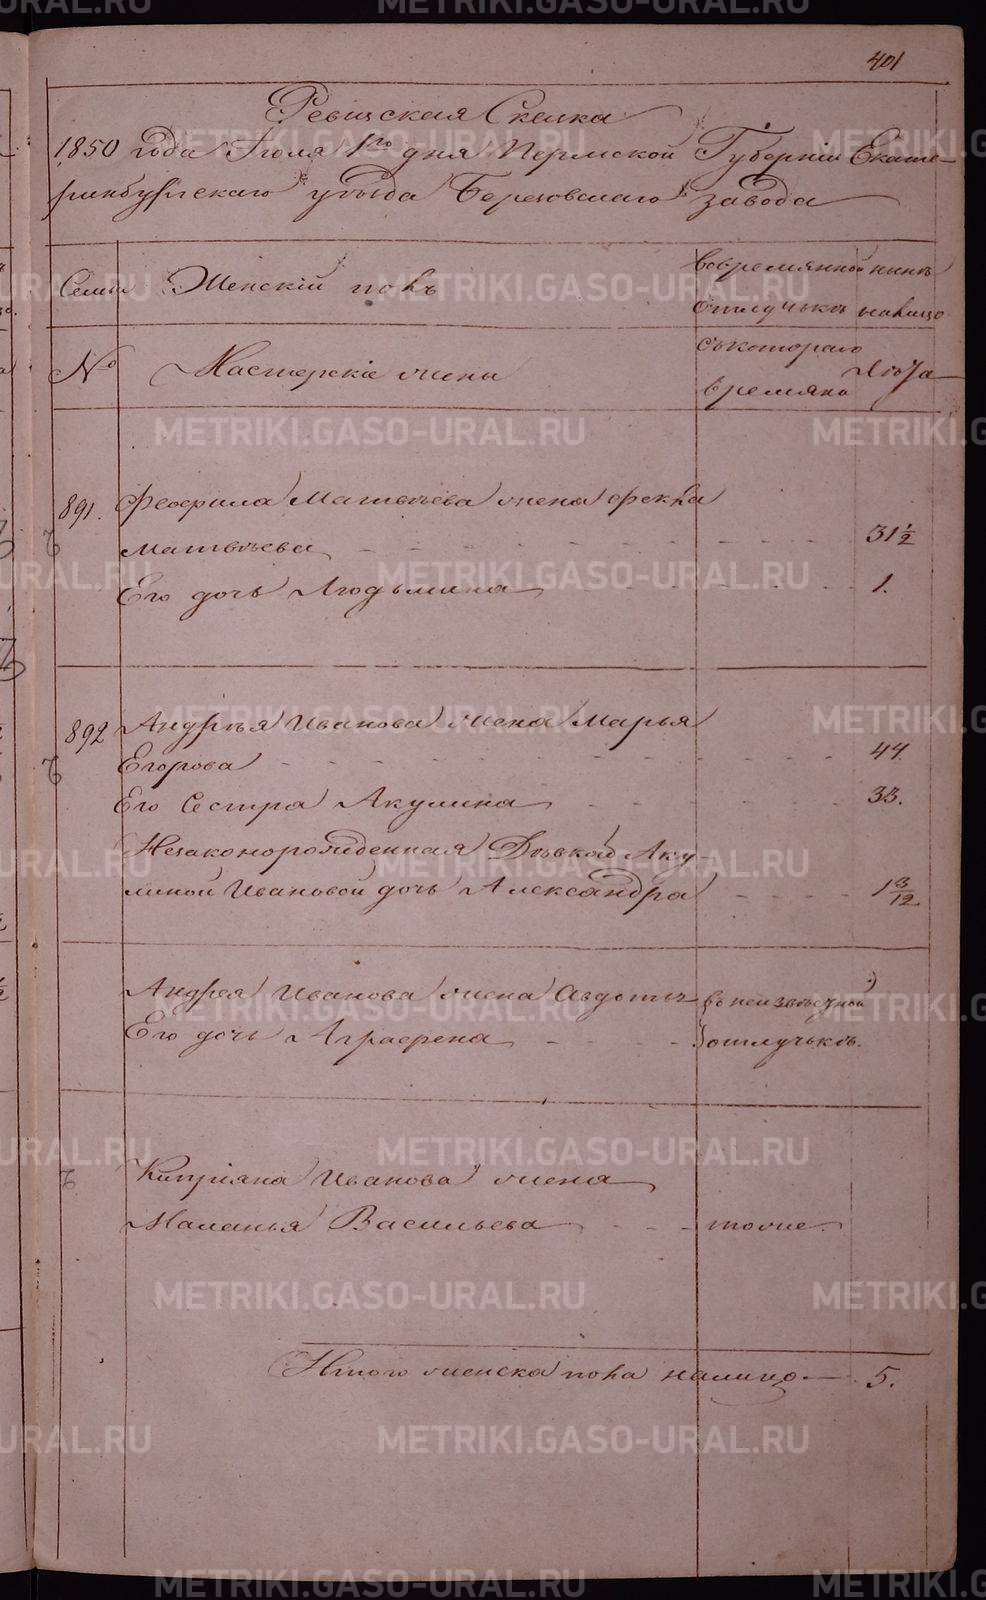 401
Ревизская Сказка
1850 года Июля 1го дня Пермской Губернiи Екате-
ринбургскаго уѣзда Березовскаго завода
Семьи Женскiй полъ
Во временной нынѣ
отлучкѣ на лицо
№ Мастерскiе жены
съ котораго
времяни
Лѣта
891. Феофила Матвѣева жена Фекла
Матвѣева 31 1/2
Его дочь Людьмила 1.
892 Андрѣя Иванова жена Марья
Егорова 44
Его Сестра Акулина 33.
Незаконорожденная Дѣвкой Аку-
линой Ивановой дочь Александра 1 3/12
Андрея Иванова жена Авдотья въ неизвѣстной
Его дочь Аграфена отлучкѣ.
Кипрiяна Иванова жена
Маланья Васильева тоже.
Итого женска пола на лицо 5.
METRIKI.GASO-URAL.RU